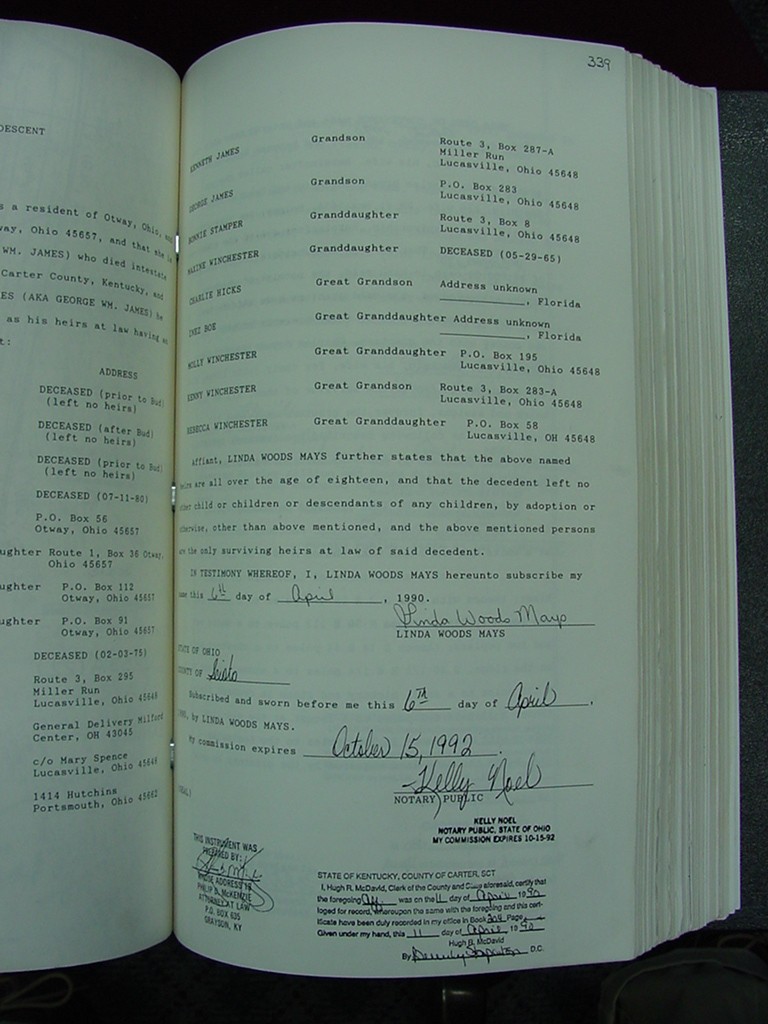 DESCENT
s a resident of Otway, Ohio, and
way, Ohio 45657, and that she is
WM. JAMES) who died intestate
Carter County, Kentucky, and
ES (AKA GEORGE WM. JAMES) he
as his heirs at law having an
t:
ADDRESS
DECEASED (prior to Bud)
(left no heirs)
DECEASED (after Bud)
(left no heirs)
DECEASED (prior to Bud)
(left no heirs)
DECEASED (07-11-80)
P.O. Box 56
Otway, Ohio 45657
ughter Route 1, Box 36 Otway,
Ohio 45657
ughter P.O. Box 112
Otway, Ohio 45657
ughter P.O. Box 91
Otway, Ohio 45657
DECEASED (02-03-75)
Route 3, Box 295
Miller Run
Lucasville, Ohio 45648
General Delivery Milford
Center, OH 43045
c/o Mary Spence
Lucasville, Ohio 45648
1414 Hutchins
Portsmouth, Ohio 45662
339
KENNETH JAMES Grandson Route 3, Box 287-A
Miller Run
Lucasville, Ohio 45648
GEORGE JAMES Grandson P.O. Box 283
Lucasville, Ohio 45648
BONNIE STAMPER Granddaughter Route 3, Box 8
Lucasville, Ohio 45648
MAXINE WINCHESTER Granddaughter DECEASED (05-29-65)
CHARLIE HICKS Great Grandson Address unknown
, Florida
INEZ BOE Great Granddaughter Address unknown
, Florida
MOLLY WINCHESTER Great Granddaughter P.O. Box 195
Lucasville, Ohio 45648
KENNY WINCHESTER Great Grandson Route 3, Box 283-A
Lucasville, Ohio 45648
REBECCA WINCHESTER Great Granddaughter P.O. Box 58
Lucasville, OH 45648
Affiant, LINDA WOODS MAYS further states that the above named
heirs are all over the age of eighteen, and that the decedent left no
other child or children or descendants of any children, by adoption or
otherwise, other than above mentioned, and the above mentioned persons
are the only surviving heirs at law of said decedent.
IN TESTIMONY WHEREOF, I, LINDA WOODS MAYS hereunto subscribe my
name this 6th day of April, 1990.
Linda Woods Mays
LINDA WOODS MAYS
STATE OF OHIO
COUNTY OF Scioto
Subscribed and sworn before me this 6TH day of April,
1990, by LINDA WOODS MAYS.
My commission expires October 15, 1992.
Kelly Noel
NOTARY PUBLIC
(SEAL)
KELLY NOEL
NOTARY PUBLIC, STATE OF OHIO
MY COMMISSION EXPIRES 10-15-92
THIS INSTRUMENT WAS
PREPARED BY:
WHOSE ADDRESS IS
PHILIP D. McKENZIE
ATTORNEY AT LAW
P.O. BOX 635
GRAYSON, KY
STATE OF KENTUCKY, COUNTY OF CARTER, SCT
I, Hugh R. McDavid, Clerk of the County and State aforesaid, certify that
the foregoing Aff. was on the 11 day of April 1990
lodged for record, whereupon the same with the foregoing and this cert-
ificate have been duly recorded in my office in Book 204 Page
Given under my hand, this 11 day of April 1990
Hugh R. McDavid
By D.C.